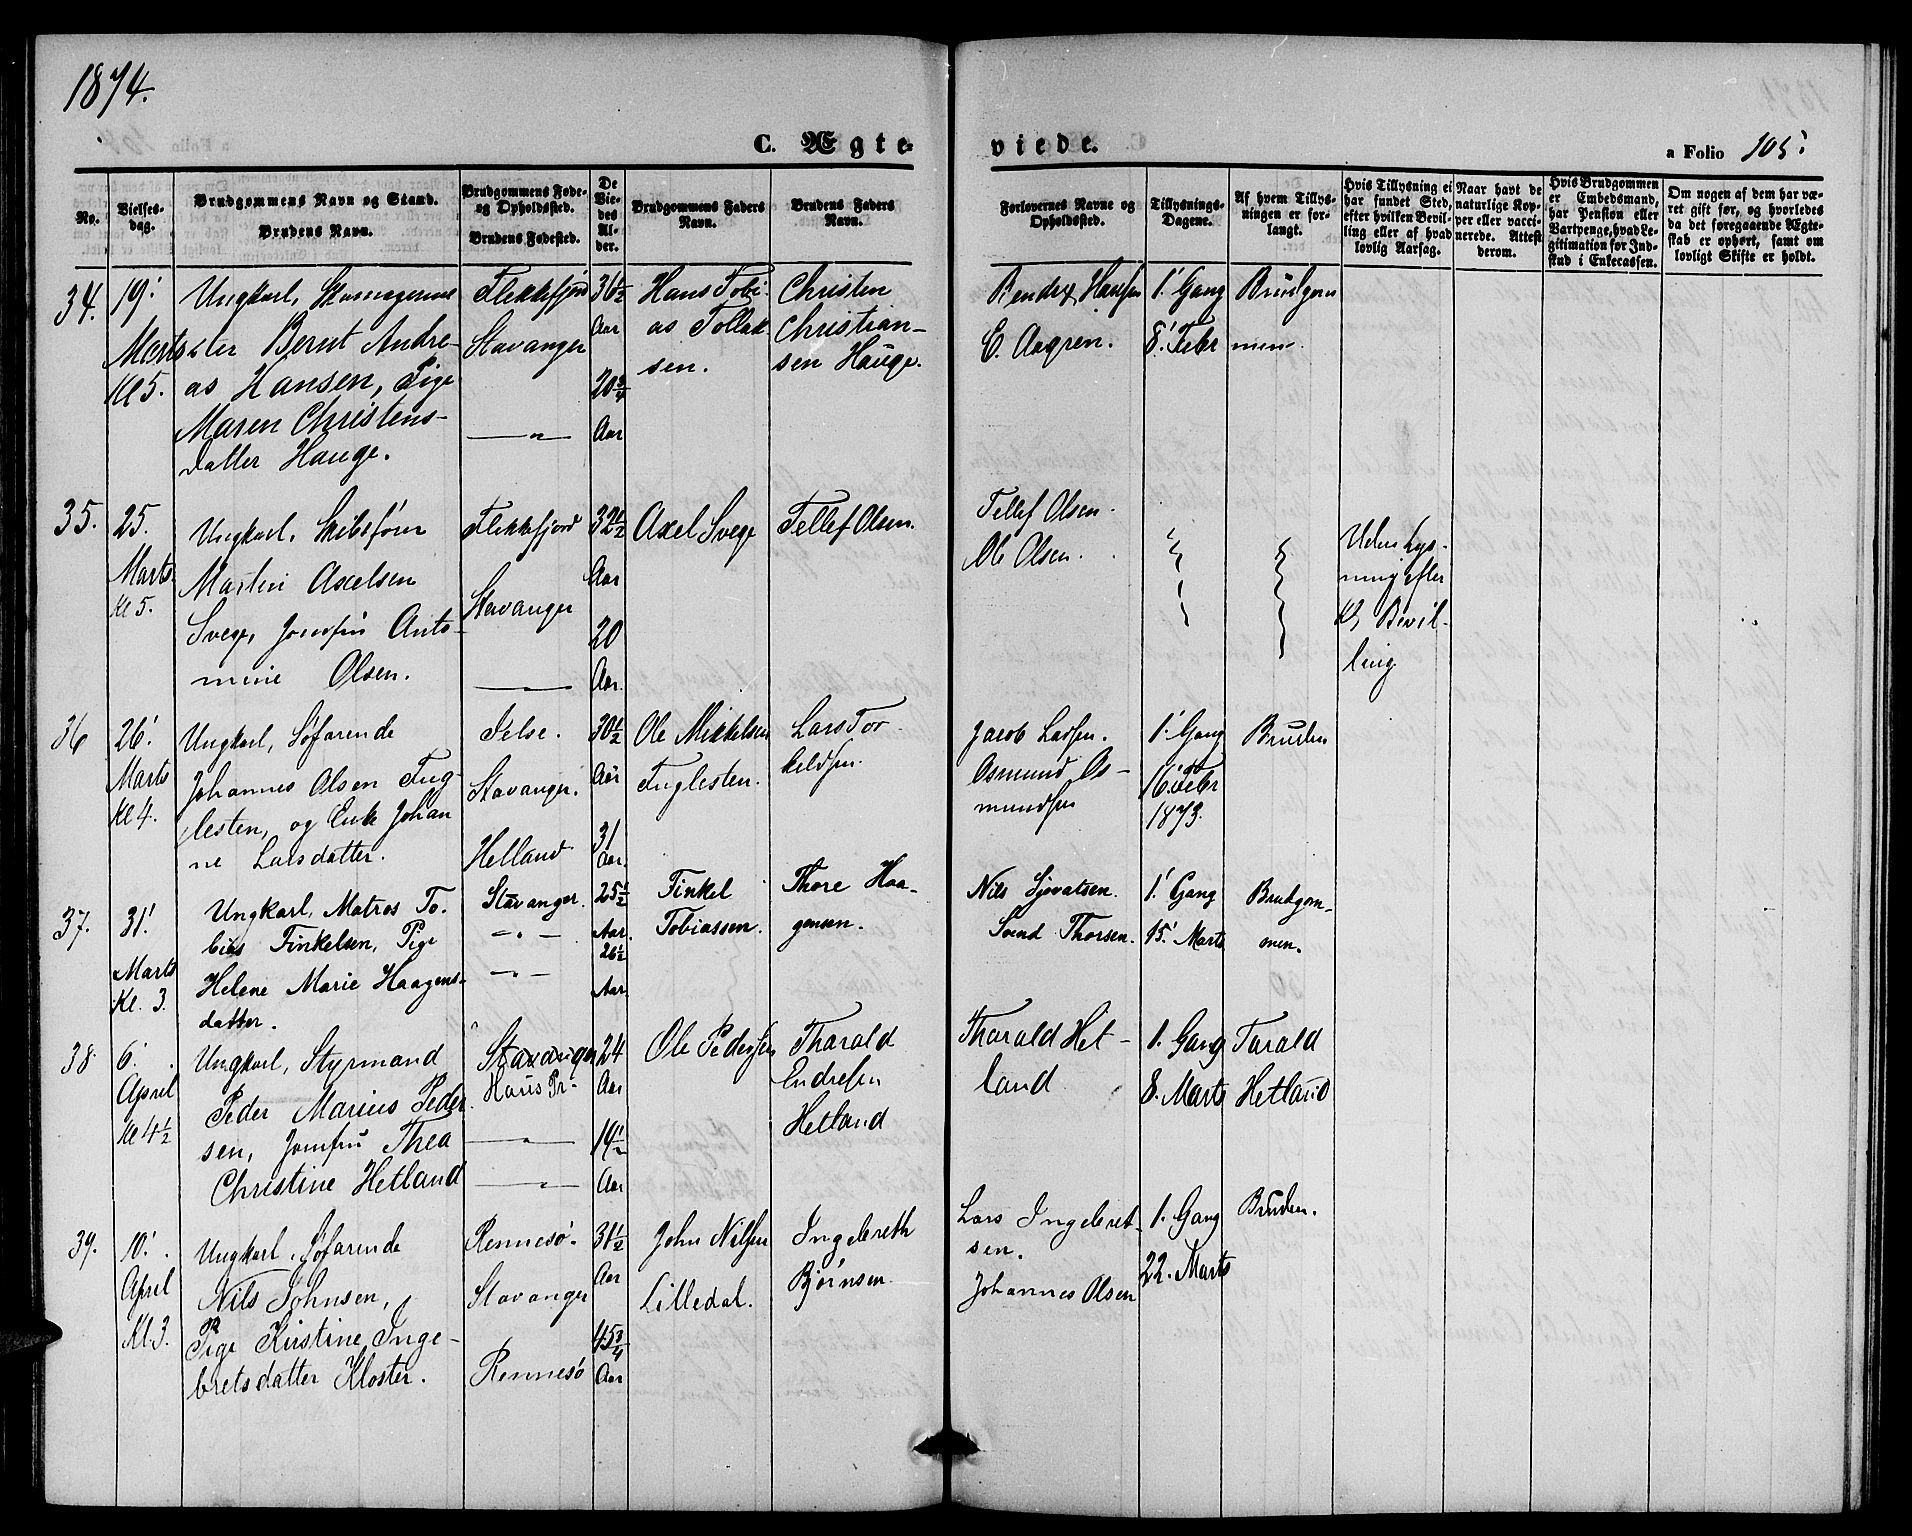 1874.
C. Ægte-
viede.
a Folio 105.
No.
Vielses-
dag.
Brudgommens Navn og Stand.
Brudens Navn.
Brudgommens Føde-
og Opholdssted.
Brudens Fødested.
De
Vie-
des
Al-
der.
Brudgommens Faders
Navn.
Brudens Faders
Navn.
Forlovernes Navne og
Opholdssted.
Tillysnings-
Dagene.
Af hvem Tillys-
ningen er for-
langt.
Hvis Tillysning ei
har fundet Sted,
efter hvilken Bevil-
ling eller af hvad
lovlig Aarsag.
Naar havt de
naturlige Kop-
per eller vacci-
nerede. Attest
derom.
Hvis Brudgommen
er Embedsmand,
har Pension eller
Vartpenge, hvad Le-
gitimation for Ind-
skud i Enkecassen.
Om nogen af dem har væ-
ret gift før, og hvorledes
da det foregaaende Ægte-
skab er ophørt, samt om
lovligt Skifte er holdt.
34.
19.
Marts
Kl 5.
Ungkarl, Skomagerme
ster Bernt Andre-
as Hansen, Pige
Maren Christens-
datter Hauge.
Flekkefjord
Stavanger
— " —
36½
Aar
20¾
Aar
Hans Tobi
as Tollak
sen.
Christen
Christian-
sen Hauge.
Bendix Hansen
C. Aagren.
1. Gang
8. Febr
Brudgom
men.
35.
25.
Marts
Kl 5.
Ungkarl, Skibsfører
Martin Axelsen
Svege, Jomfru Ants-
mine Olsen.
Flekkefjord
Stavanger
—
32½
Aar
20
Aar.
Axel Svege
Tellef Olsen.
Tellef Olsen.
Ole Olsen.
Uden Lys-
ning efter
Kl. Bevil-
ling
36
26.
Marts
Kl 4.
Ungkarl, Søfarende
Johannes Olsen Fug-
lesten, og Enke Johan
ne Larsdatter.
Stavanger.
Helland
30½
Aar
31
Aar.
Ole Mikkelsen
Fuglesten.
Lars Tor-
keldsen.
Jacob Larsen.
Osmund Os-
mundsen
1. Gang
16. Febr
1873.
Bruden
37.
31.
Marts
Kl. 3.
Ungkarl, Matros To-
bias Finkelsen, Pige
Helene Marie Haagens-
datter.
Stavanger.
— " —
— " —
25½
Aar.
26½
Aar.
Finkel
Tobiassen.
Thore Haa-
gensen.
Nils Sjovatsen.
Svend Thorsen.
1. Gang
15. Marts
Brudgom-
men.
38.
6.
April
Kl 4½
Ungkarl, Styrmand
Peder Marius Peder
sen, Jomfru Thea
Christine Hetland
Stavanger
Haus Pr.
— " —
— " —
24
Aar
19½
Aar
Ole Pedersen
Tharald
Endresen
Hetland
Tharald Het-
land
1. Gang
8. Marts
Tarald
Hetland
39.
10.
April
Kl. 3.
Ungkarl, Søfarende
Nils Johnsen,
Pige Kirstine Inge-
bretsdatter Kloster.
Rennesø.
Stavanger
Rennesø
31½
Aar
45¾
Aar
John Nilsen
Lilledal.
Ingebreth
Bjørnsen.
Lars Ingebret-
sen.
Johannes Olsen
1. Gang
22. Marts
Bruden.